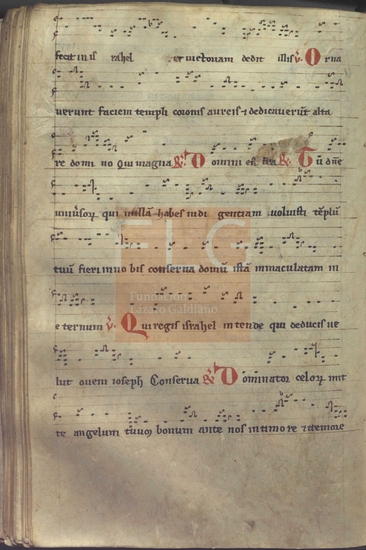 fecit in israhel et victoriam dedit illis ℣. Orna
verunt faciem templi coronis aureis ⁊ dedicaverūt alta
re domino Qui magna ℟. Domini est ℟. Tu dn̄e
universoꝝ qui nullā habes indigentiam voluisti tēplū
tuū fieri in nobis conserva domū istā inmaculatam in
eternum ℣. Qui regis israhel intende qui deducis ve
lut ovem ioseph Conserva ℟. Dominator celoꝝ mit
te angelum tuum bonum ante nos in timore ⁊ tremore
FLG
Fundación
Lázaro Galdiano